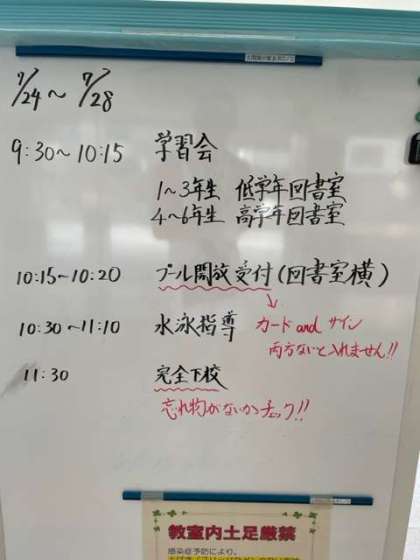 7/24~7/28
9:30~10:15 学習会
1~3年生 低学年図書室
4~6年生 高学年図書室
10:15~10:20 プール開放受付(図書室横)
10:30~11:10 水泳指導 カードand サイン
両方ないと入れません!!
11:30 完全下校
忘れ物がないかチェック!!
教室内土足厳禁
感染症予防により、